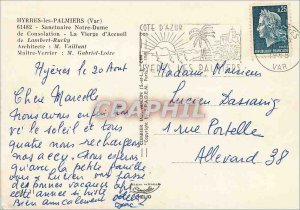 HYERES-les-PALMIERS (Var)
61482 - Sanctuaire Notre-Dame
de Consolation - La Vierge d'Accueil
de Lambert-Rucky
Architecte : M. Vaillant
Maître-Verrier : M. Gabriel-Loire
COTE D'AZUR
HYERES LES PALMIERS
0,25
REPUBLIQUE FRANCAISE
VAR
Hyères le 20 Aout
Chère Marcelle
Nous avons enfin trou-
vé le soleil et tous
quatre nous rechargeons
nos accus. Nous espérons
qu'avec la petite famille
Lucien
des bonnes vacances
cette année si
Bien amicalement
Madame Monsieur
Lucien Dassang
1 rue Portelle
Allevard 38